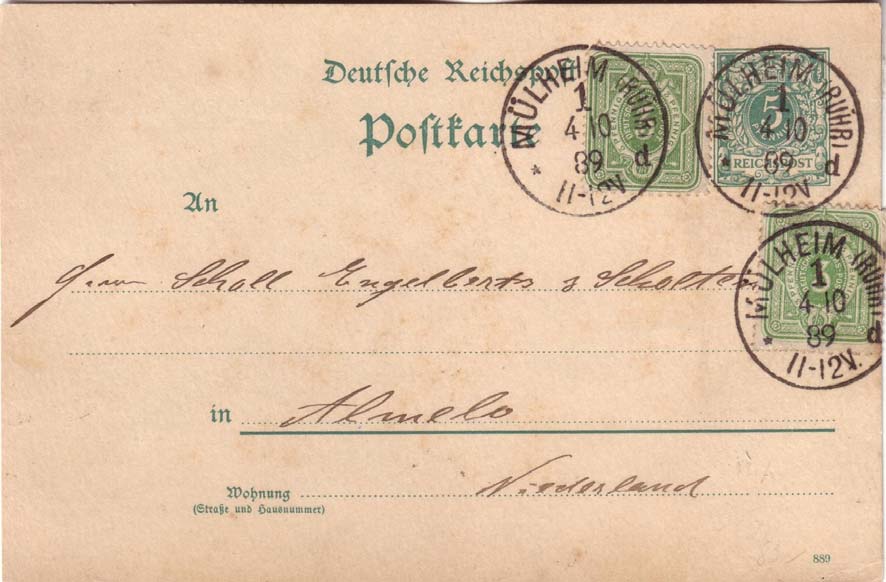 Deutsche Reichspost
Postkarte
MÜLHEIM (RUHR)
1
4 10
89 d
* 11-12V.
MÜLHEIM (RUHR)
1
4 10
89 d
* 11-12V
5
REICHSPOST
An
Herrn Scholl Engelberts & Scholten
MÜLHEIM (RUHR)
1
4 10
89 d
* 11-12V.
in Almelo
Wohnung Niederland
(Straße und Hausnummer)
889